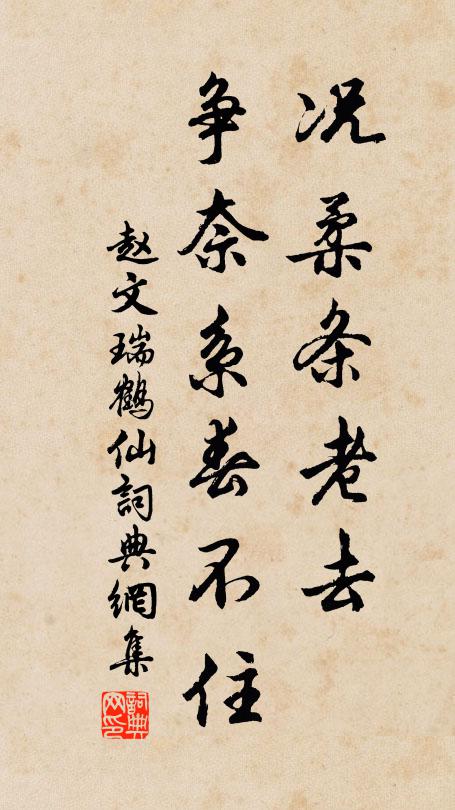 况柔条老去
争奈系春不住
赵文瑞鹤仙詞典網集
詞典网印